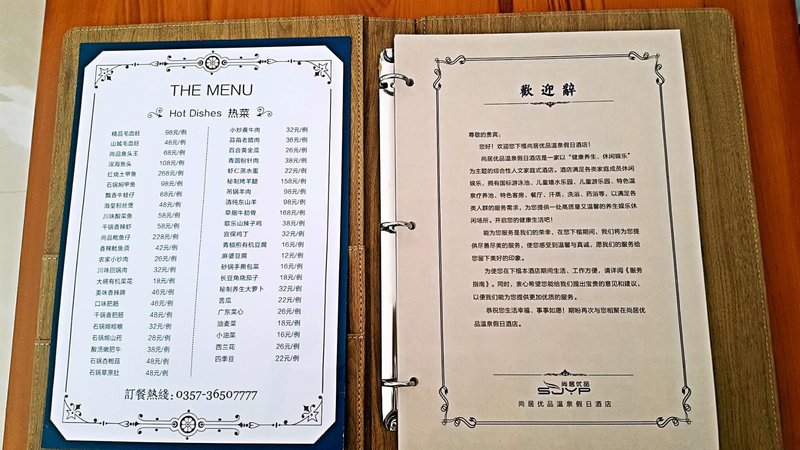 THE MENU
Hot Dishes 热菜
精品毛血旺 98元/例
山城毛血旺 48元/例
尚品鱼头王 68元/例
深海鱼头 108元/例
红烧土甲鱼 268元/例
石锅焗甲鱼 98元/例
飘香牛蛙仔 68元/例
海皇粉丝煲 48元/例
川味酸菜鱼 58元/例
干锅香辣虾 58元/例
尚品鮰鱼仔 228元/例
香辣鱿鱼须 42元/例
农家小炒肉 26元/例
川味回锅肉 32元/例
大碗有机菜花 18元/例
美味香辣蹄 46元/例
口味肥肠 46元/例
干锅香肥肠 48元/例
石锅焗桂糗 32元/例
石锅焗山药 28元/例
酸汤嫩肥牛 38元/例
石锅杏鲍菇 48元/例
石锅草原肚 48元/例
小炒黄牛肉 32元/例
蒜苗老腊肉 36元/例
百合黄金瓜 26元/例
青圆粉针肉 38元/例
虾仁蒸水蛋 22元/例
秘制烤羊腿 158元/例
吊锅羊肉 98元/例
清炖东山羊 98元/例
草捆牛肋骨 168元/例
歌乐山辣子鸡 38元/例
宫保鸡丁 32元/例
青椒煎有机豆腐 16元/例
麻婆豆腐 12元/例
砂锅手撕包菜 16元/例
长豆角烧茄子 18元/例
秘制养生大萝卜 32元/例
苦瓜 22元/例
广东菜心 26元/例
油麦菜 18元/例
小油菜 16元/例
西兰花 26元/例
四季豆 22元/例
訂餐熱綫:0357-36507777
歡迎辭
尊敬的贵宾：
您好！欢迎您下榻尚居优品温泉假日酒店！
尚居优品温泉假日酒店是一家以“健康养生、休闲娱乐”
为主题的综合性人文家庭式酒店。酒店满足各类家庭成员休闲
娱乐，拥有国际游泳池、儿童嬉水乐园、儿童游乐园、特色温
泉疗养池、特色客房、餐厅、汗蒸、洗浴、药浴等，以满足各
类人群的服务需求，为您提供一处高质量又温馨的养生娱乐休
闲场所，开启您的健康生活吧！
能为您服务是我们的荣幸，在您下榻期间，我们将为您提
供尽善尽美的服务，使您感受到温馨与真诚，愿我们的服务给
您留下美好的印象。
为使您在下榻本酒店期间生活、工作方便，请详阅《服务
指南》。同时，衷心希望您能给我们提出宝贵的意见和建议，
以便我们能为您提供更加优质的服务。
恭祝您生活幸福、事事如愿！期盼再次与您相聚在尚居优
品温泉假日酒店。
尚居优品
SJYP
尚居优品温泉假日酒店